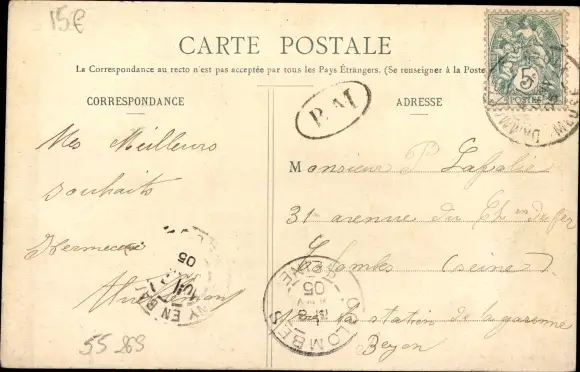 15€
CARTE POSTALE
La Correspondance au recto n'est pas acceptée par tous les Pays Étrangers. (Se renseigner à la Poste
CORRESPONDANCE
ADRESSE
B.M
5c
POSTES
MEUSE
Mes Meilleurs
souhaits
Monsieur P Lafolie
31 avenue du Ch en de fer
Colombes (seine)
station de la garenne
Bezon
COLOMBES
05
05
55 269